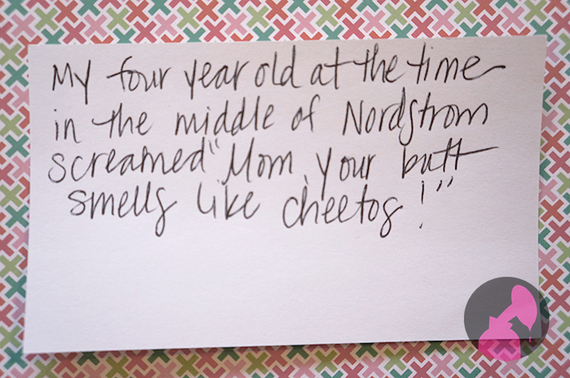 My four year old at the time
in the middle of Nordstrom
screamed "Mom, your butt
smells like cheetos!"